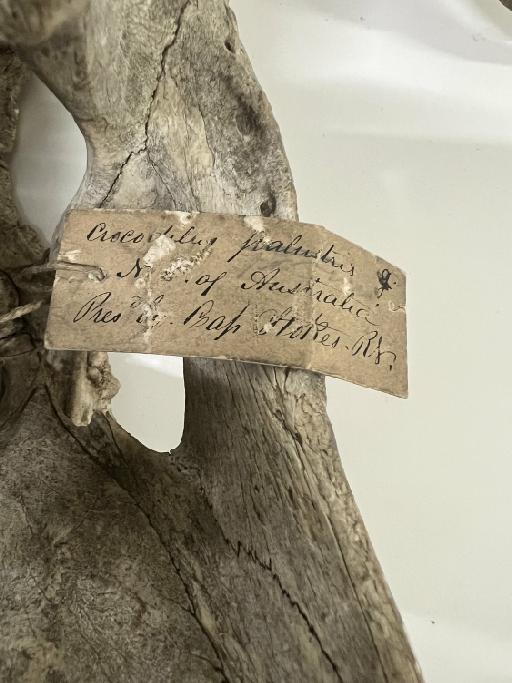 Crocodilus palustris
N. of Australia
Pres.d by Cap Stokes. R.N.